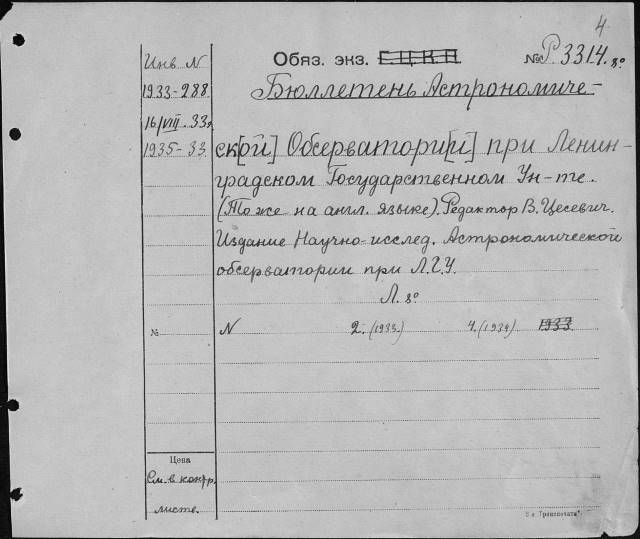 4
Обяз. экз. Е.Ц.К.П №Р.3314.8°
Инв. N
1933-288
16/VIII.33г
1935-33
Бюллетень Астрономиче-
ск[ой] Обсерватори[и] при Ленин-
градском Государственном Ун-те.
(То же на англ. языке). Редактор В. Цесевич.
Издание Научно-исслед. Астрономической
обсерватории при Л.Г.У.
Л. 8°
№ N 2. (1933.) 4. (1934) 1933
Цена
См. в контр.
листе.